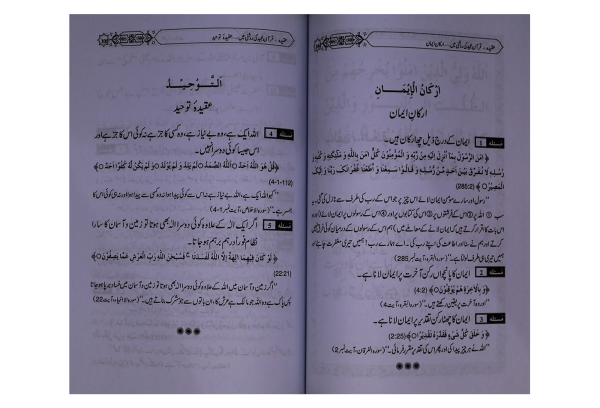 عقیدہ - قرآن مجید کی روشنی میں ... ارکان ایمان
اَرْکَانُ الْاِیْمَانِ
ارکان ایمان
مسئلہ 1 ایمان کے درج ذیل چھ ارکان ہیں۔
﴿اٰمَنَ الرَّسُوْلُ بِمَآ اُنْزِلَ اِلَیْهِ مِنْ رَّبِّهٖ وَ الْمُؤْمِنُوْنَ کُلٌّ اٰمَنَ بِاللّٰهِ وَ مَلٰٓئِکَتِهٖ وَ کُتُبِهٖ وَ
رُسُلِهٖ لَا نُفَرِّقُ بَیْنَ اَحَدٍ مِّنْ رُّسُلِهٖ وَ قَالُوْا سَمِعْنَا وَ اَطَعْنَا غُفْرَانَکَ رَبَّنَا وَ اِلَیْکَ
الْمَصِیْرُ ○﴾ (285:2)
"رسول اور سارے مومن ایمان لائے اس چیز پر جو اس کے رب کی طرف سے نازل کی گئی۔ یہ
سب ① اللہ پر ② اس کے فرشتوں پر ③ اس کی کتابوں پر اور ④ اس کے رسولوں پر ایمان لائے (اور
اس بات کا اقرار کرتے ہیں کہ ایمان لانے کے معاملے میں) ہم اس کے رسولوں کے درمیان کوئی فرق نہیں
کرتے اور ہم نے سنا اور اطاعت کی اپنے رب کی۔ اے ہمارے رب! ہمیں تیری مغفرت چاہئے اور
ہمیں تیری ہی طرف لوٹنا ہے۔" (سورہ البقرہ، آیت نمبر 285)
مسئلہ 2 ایمان کا پانچواں رکن آخرت پر ایمان لانا ہے۔
﴿وَ بِالْاٰخِرَةِ هُمْ یُوْقِنُوْنَ ○﴾ (4:2)
"اور وہ آخرت پر یقین رکھتے ہیں۔" (سورہ البقرہ، آیت 4)
مسئلہ 3 ایمان کا چھٹا رکن تقدیر پر ایمان لانا ہے۔
﴿وَ خَلَقَ کُلَّ شَیْءٍ فَقَدَّرَهٗ تَقْدِیْرًا ○﴾ (2:25)
"اللہ نے ہر چیز پیدا کی اور پھر اس کی تقدیر مقرر فرمائی۔" (سورہ الفرقان، آیت نمبر 2)
عقیدہ - قرآن مجید کی روشنی میں ... عقیدۂ توحید
اَلتَّوْحِیْدُ
عقیدۂ توحید
مسئلہ 4 اللہ ایک ہے، وہ بے نیاز ہے، وہ کسی کا جز ہے نہ کوئی اس کا جز ہے اور
اس جیسا کوئی دوسرا نہیں۔
﴿قُلْ هُوَ اللّٰهُ اَحَدٌ ○ اَللّٰهُ الصَّمَدُ ○ لَمْ یَلِدْ وَ لَمْ یُوْلَدْ ○ وَ لَمْ یَکُنْ لَّهٗ کُفُوًا اَحَدٌ ○﴾
(4-1:112)
"کہو اللہ ایک ہے، اللہ بے نیاز ہے نہ اس سے کوئی پیدا ہوا نہ وہ کسی سے پیدا ہوا ہے اور نہ ہی کوئی اس کا
ہمسر ہے۔" (سورہ الاخلاص، آیت نمبر 1-4)
مسئلہ 5 اگر ایک الٰہ کے علاوہ کوئی دوسرا الٰہ بھی ہوتا تو زمین و آسمان کا سارا
نظام فوراً درہم برہم ہو جاتا۔
﴿لَوْ کَانَ فِیْهِمَآ اٰلِهَةٌ اِلَّا اللّٰهُ لَفَسَدَتَا فَسُبْحٰنَ اللّٰهِ رَبِّ الْعَرْشِ عَمَّا یَصِفُوْنَ ○﴾
(22:21)
"اگر زمین و آسمان میں اللہ کے علاوہ دوسرے الٰہ بھی ہوتے تو زمین و آسمان میں فساد برپا ہو جاتا
پس پاک ہے وہ اللہ جو مالک ہے عرش کا، ان باتوں سے جو مشرک بناتے ہیں۔" (سورہ الانبیاء، آیت 22)